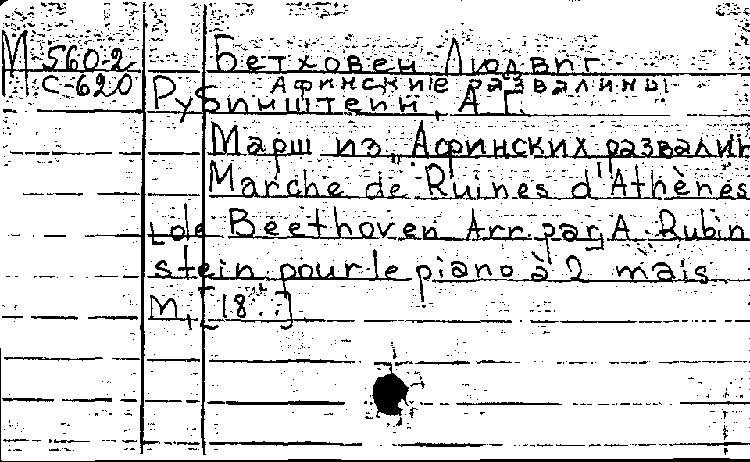 М 560-2 Бетховен Людвиг
С-620 Афинские развалины
Рубинштейн, А.Г.
Марш из "Афинских развалин
Marche de Ruines d'Athènes
[de Beethoven Arr. par A. Rubin
stein pour le piano à 2 mais
М, [18..]